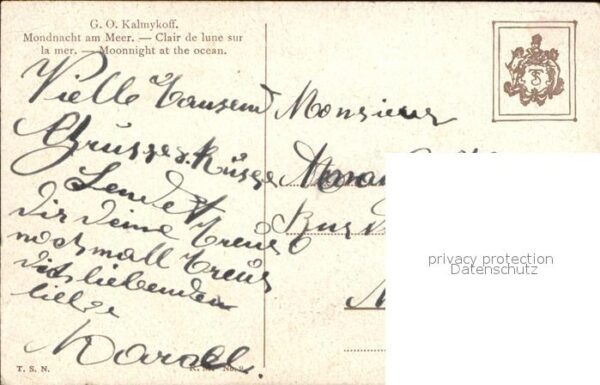 G. O. Kalmykoff.
Mondnacht am Meer. — Clair de lune sur
la mer. — Moonnight at the ocean.
Vielle tausend
Grüsse u. Küsse
Sendet
dir deine treue
nochmall treue
dich liebenden
liebe
T. S. N.
Monsieur
Rue
privacy protection
Datenschutz